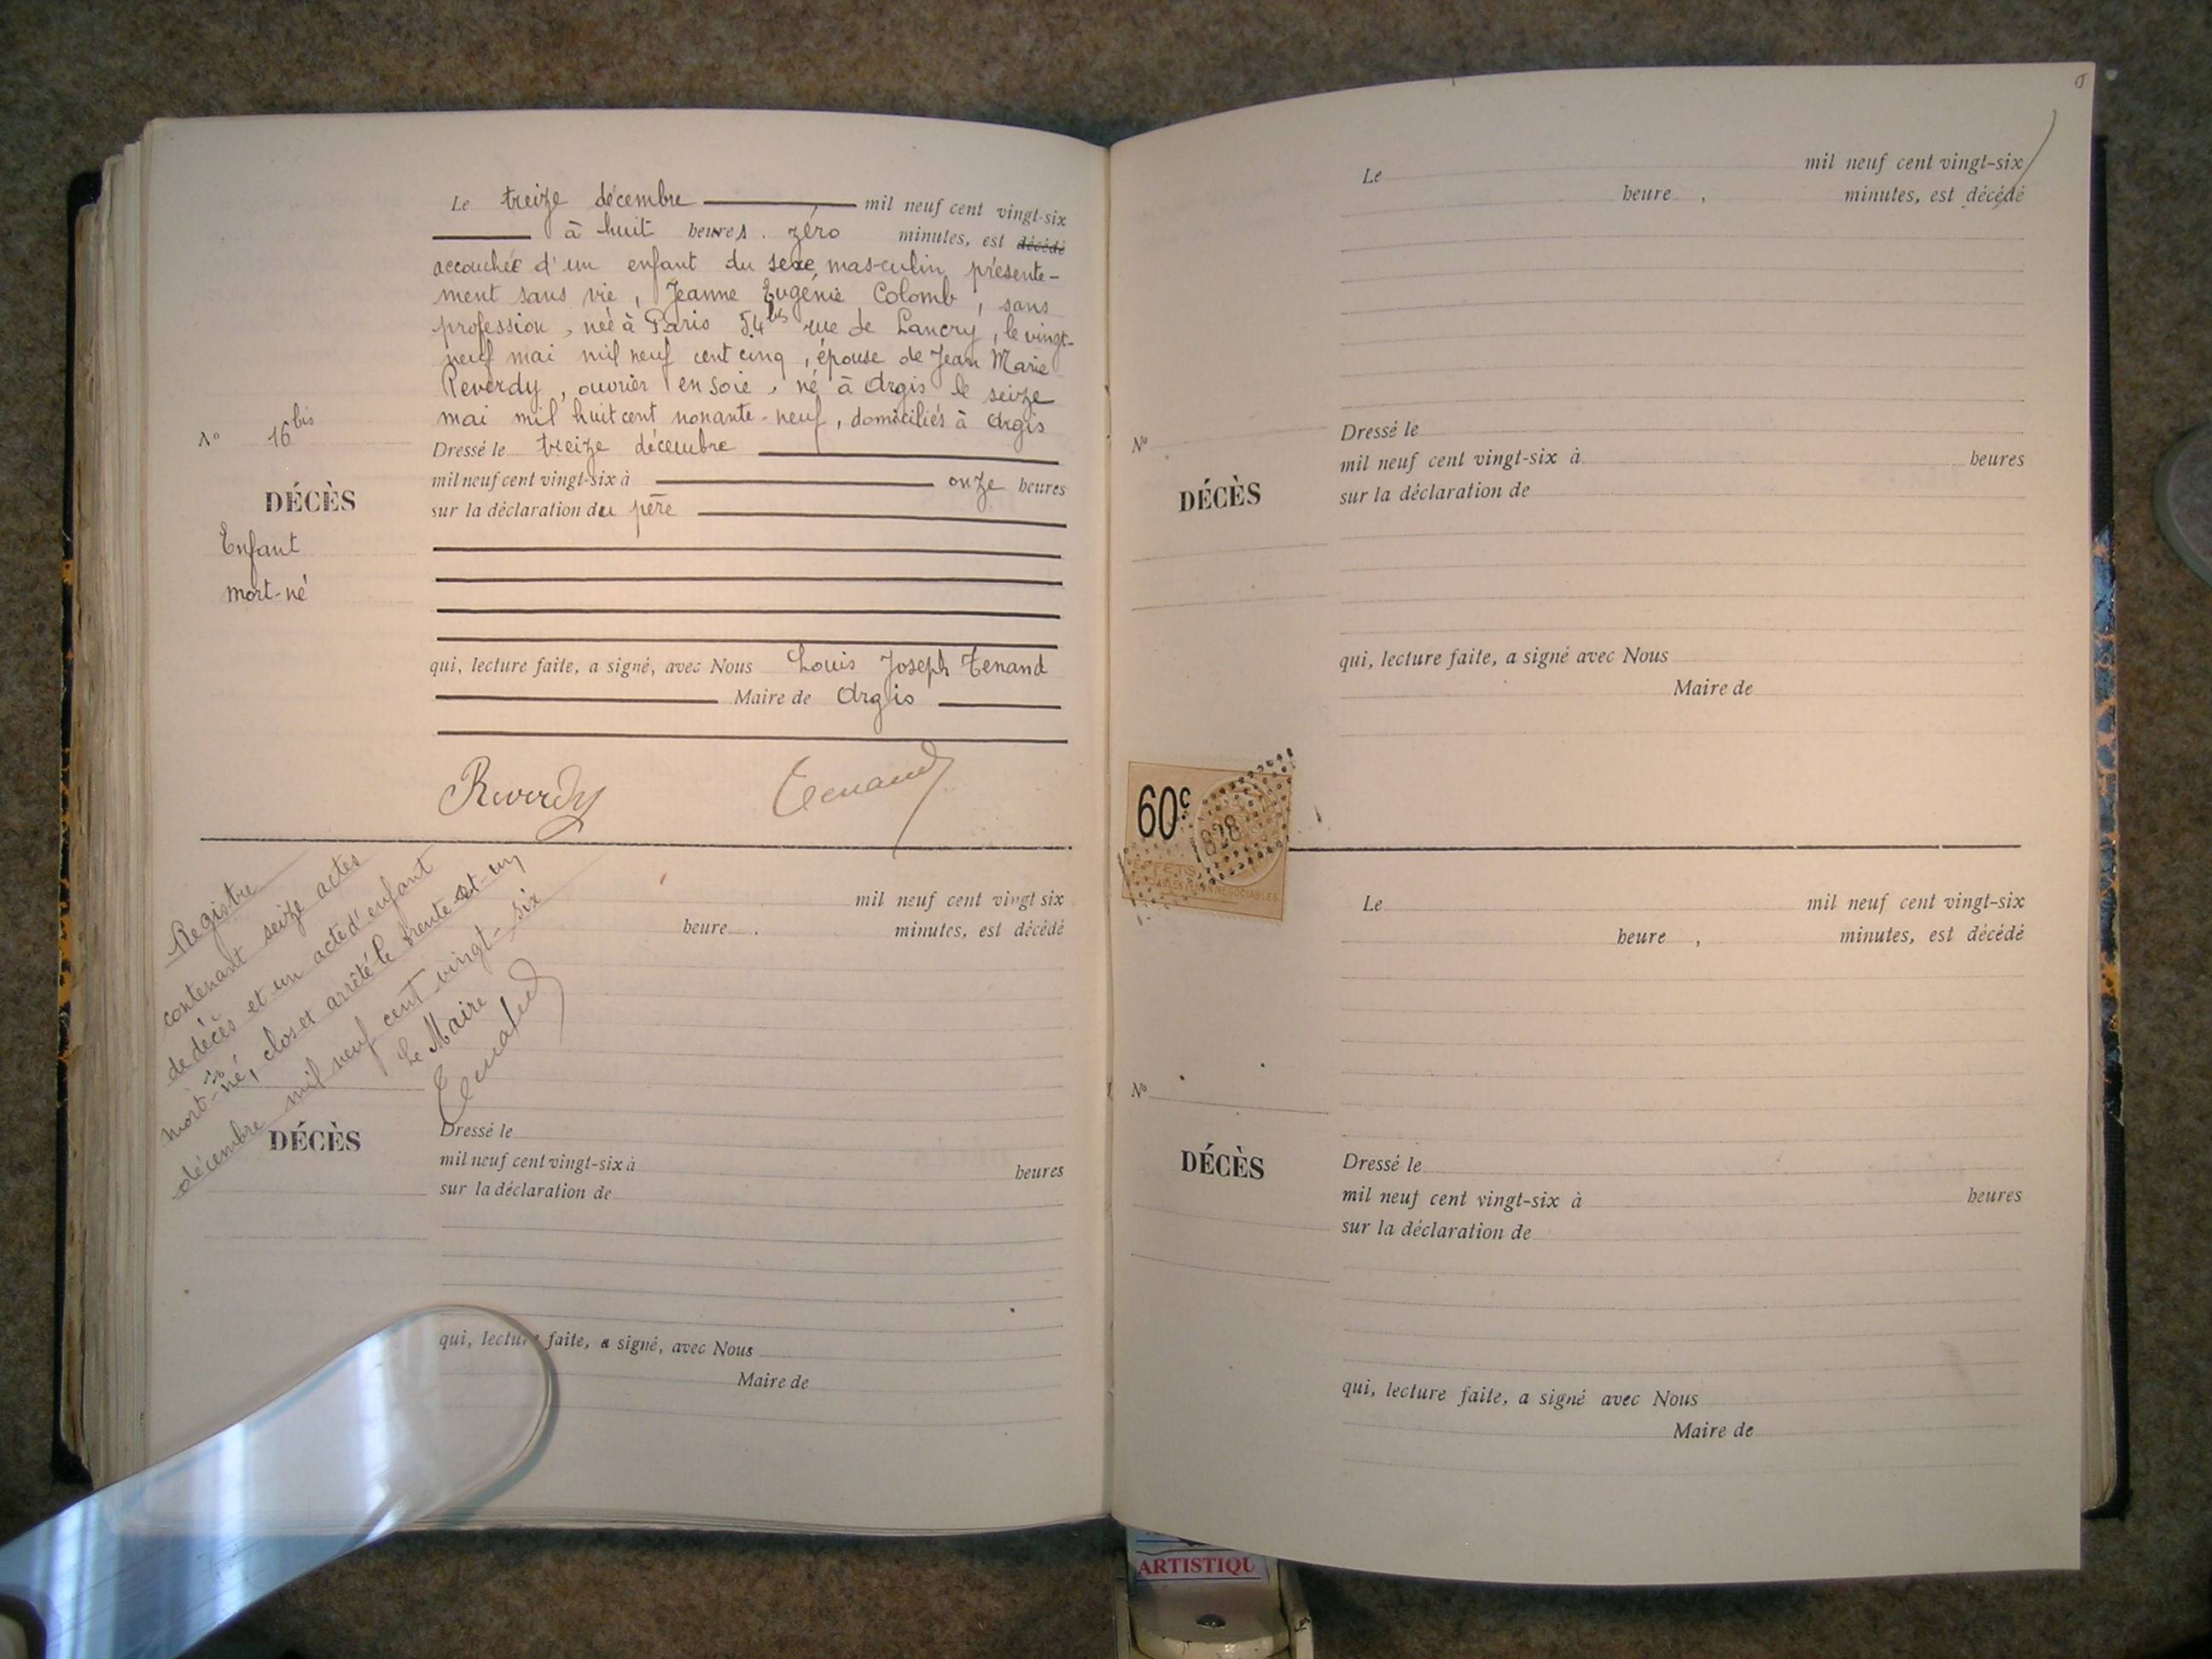 Le treize décembre mil neuf cent vingt-six
à huit heures . zéro minutes, est décédé
accouchée d'un enfant du sexe masculin présente-
ment sans vie, Jeanne Eugénie Colomb, sans
profession, née à Paris 54bis rue de Lancry, le vingt-
neuf mai mil neuf cent cinq, épouse de Jean Marie
Reverdy, ouvrier en soie, né à Argis le seize
mai mil huit cent nonante-neuf, domiciliés à Argis
No 16bis
DÉCÈS
Enfant
mort-né
Dressé le treize décembre
mil neuf cent vingt-six à onze heures
sur la déclaration du père
qui, lecture faite, a signé, avec Nous Louis Joseph Tenand
Maire de Argis
Reverdy Tenand
Registre
contenant seize actes
de décès et un acte d'enfant
mort-né, clos et arrêté le trente-et-un
décembre mil neuf cent vingt-six
Le Maire
Tenand
mil neuf cent vingt six
heure . minutes, est décédé
No
DÉCÈS
Dressé le
mil neuf cent vingt-six à heures
sur la déclaration de
qui, lecture faite, a signé, avec Nous
Maire de
Le mil neuf cent vingt-six
heure , minutes, est décédé
No
DÉCÈS
Dressé le
mil neuf cent vingt-six à heures
sur la déclaration de
qui, lecture faite, a signé avec Nous
Maire de
60c
EFFETS
Le mil neuf cent vingt-six
heure , minutes, est décédé
No
DÉCÈS
Dressé le
mil neuf cent vingt-six à heures
sur la déclaration de
qui, lecture faite, a signé avec Nous
Maire de
ARTISTIQU